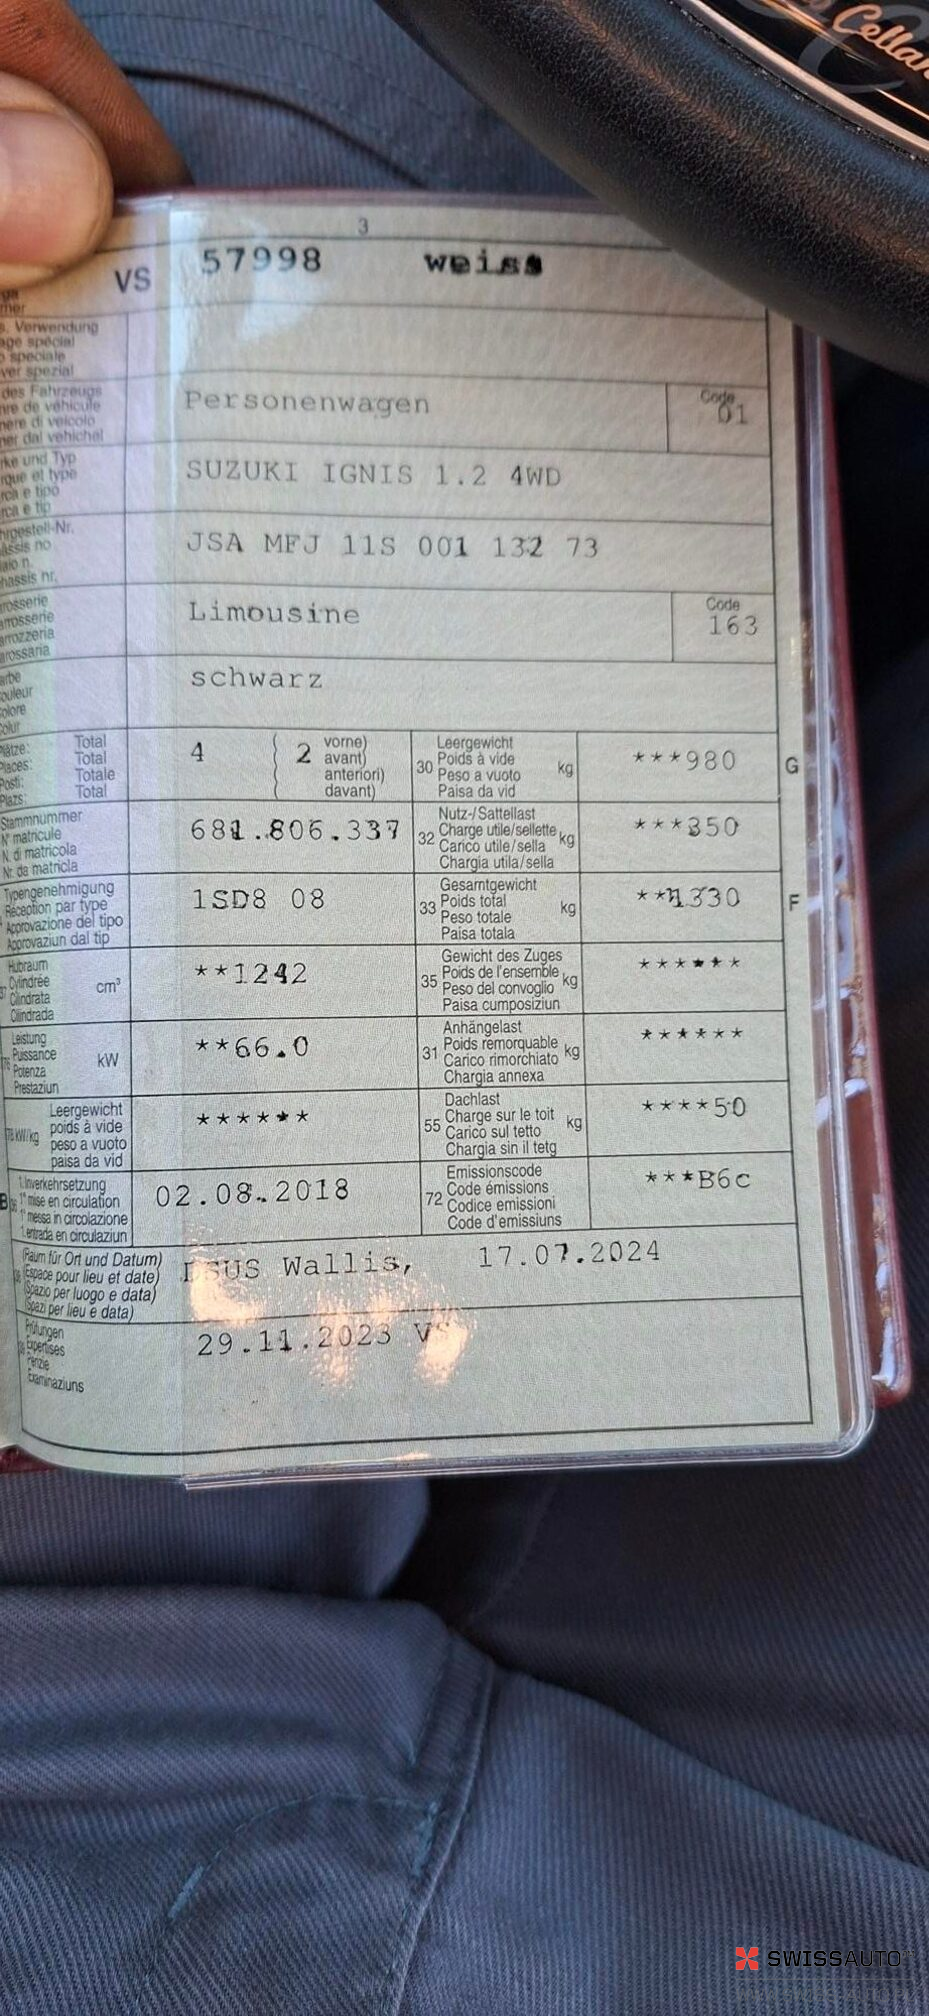 Cellar
3
VS 57998 weiss
s. Verwendung
age spécial
speciale
ver spezial
des Fahrzeugs
nre de véhicule
nere di veicolo
ner dal vehichel
Personenwagen
Code
01
rke und Typ
rque et type
rca e tipo
rca e tip
SUZUKI IGNIS 1.2 4WD
hrgestell-Nr.
âssis no
aio n.
hassis nr.
JSA MFJ 11S 001 132 73
rosserie
rrosserie
arrozzeria
arossaria
Limousine
Code
163
arbe
ouleur
olore
olur
schwarz
Plätze: Total
Places: Total
Posti: Totale
Plazs: Total
4
2
vorne)
avant)
anteriori)
davant)
30
Leergewicht
Poids à vide
Peso a vuoto
Paisa da vid
kg
***980
G
Stammnummer
N° matricule
N. di matricola
Nr. da matricla
681.806.337
32
Nutz-/Sattellast
Charge utile/sellette
Carico utile/sella
Chargia utila/sella
kg
***350
Typengenehmigung
Réception par type
Approvazione del tipo
Approvaziun dal tip
1SD8 08
33
Gesamtgewicht
Poids total
Peso totale
Paisa totala
kg
**1330
F
Hubraum
Cylindrée
Cilindrata
Cilindrada
cm³
**1242
35
Gewicht des Zuges
Poids de l'ensemble
Peso del convoglio
Paisa cumposiziun
kg
******
Leistung
Puissance
Potenza
Prestaziun
kW
**66.0
31
Anhängelast
Poids remorquable
Carico rimorchiato
Chargia annexa
kg
******
kW/kg
Leergewicht
poids à vide
peso a vuoto
paisa da vid
******
55
Dachlast
Charge sur le toit
Carico sul tetto
Chargia sin il tetg
kg
****50
B
1. Inverkehrsetzung
1re mise en circulation
1a messa in circolazione
1. entrada en circulaziun
02.08.2018
72
Emissionscode
Code émissions
Codice emissioni
Code d'emissiuns
***B6c
(Raum für Ort und Datum)
(Espace pour lieu et date)
(Spazio per luogo e data)
(Spazi per lieu e data)
DSUS Wallis, 17.07.2024
Prüfungen
Expertises
Examinaziuns
29.11.2023 VS
SWISSAUTO